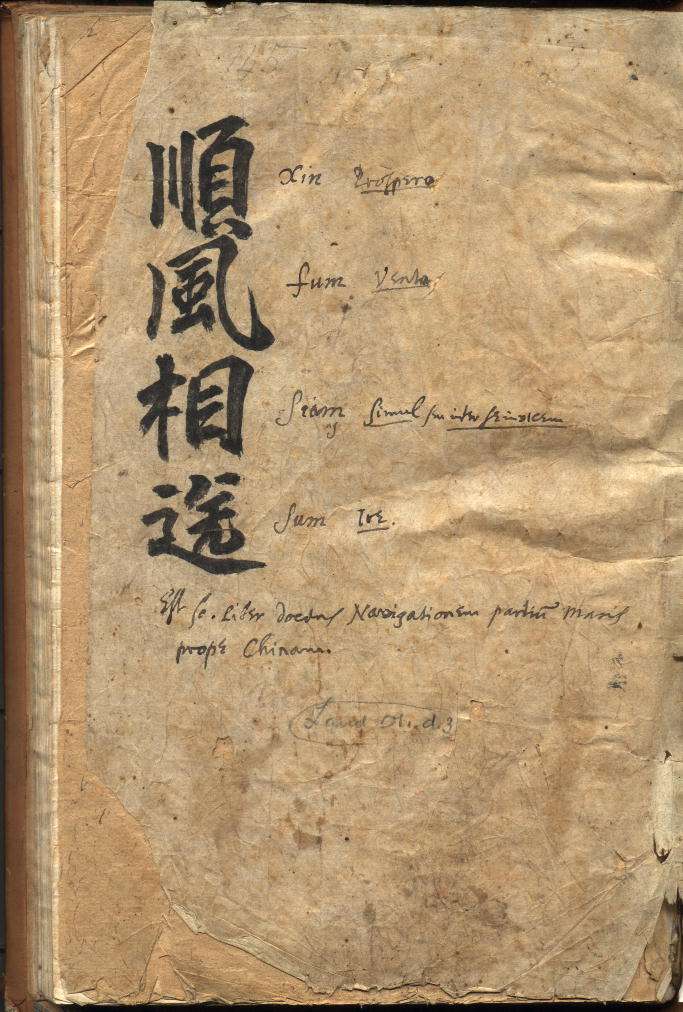 順風相送
Xin Prospero
fum Vento
Siam Simul seu inter se invicem
Sum Ire.
Est sc. Liber docens Navigationem partium Maris
prope Chinam.
Laud Or. d. 3